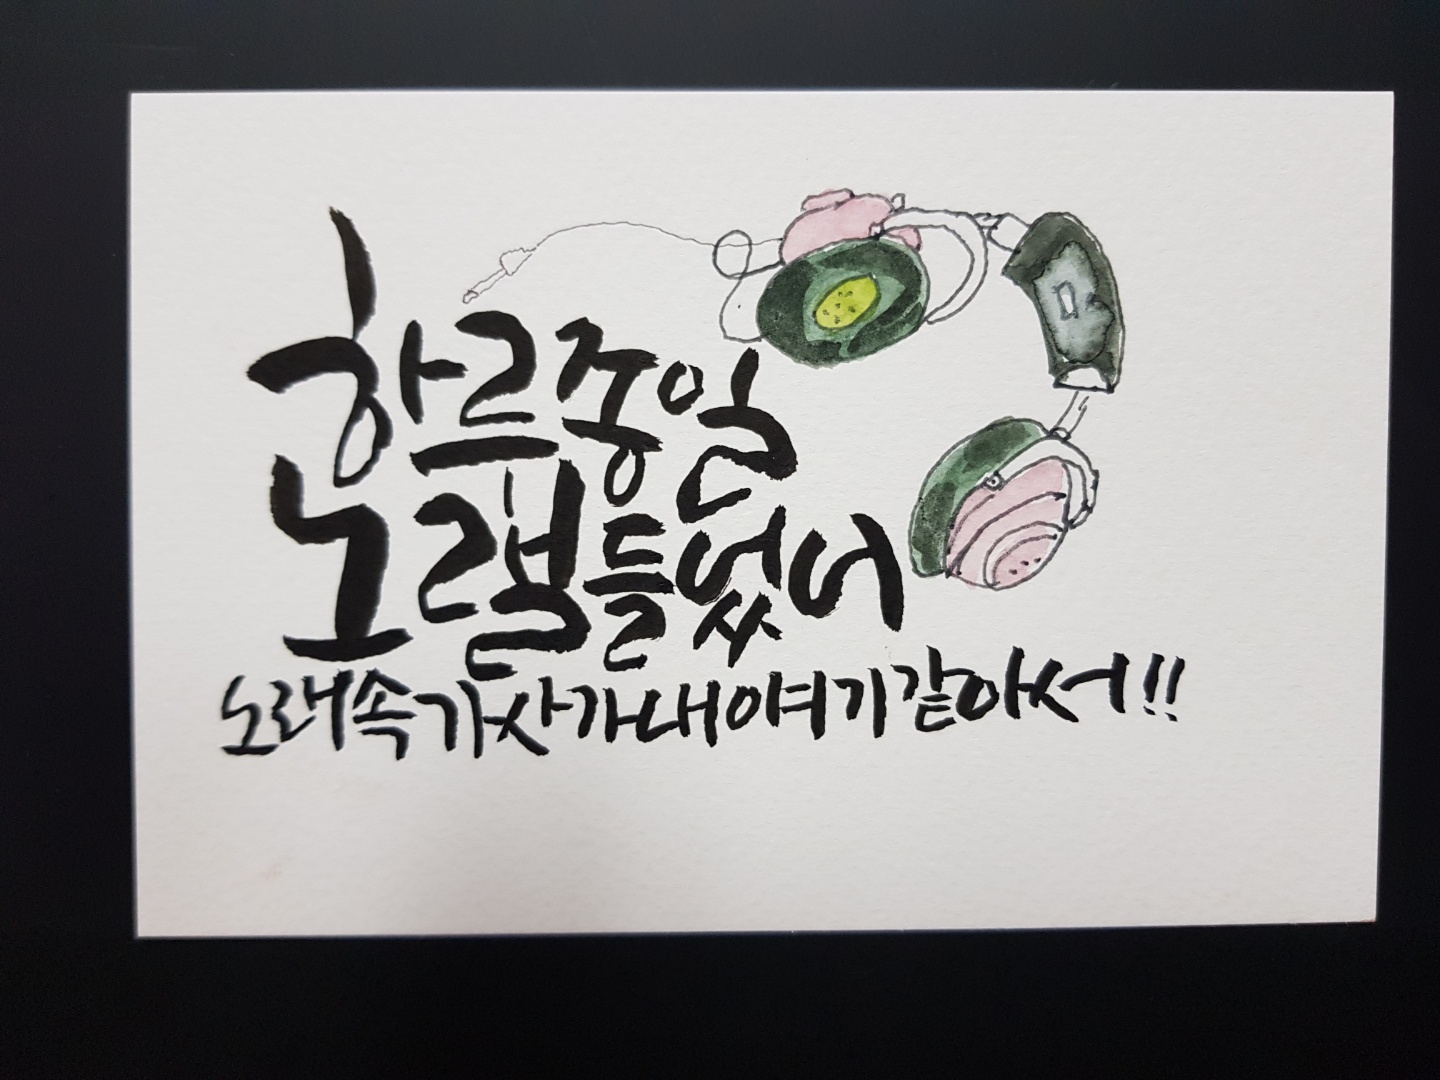 하루종일
노랠 들었어
노래속 가사가 내 얘기 같아서!!